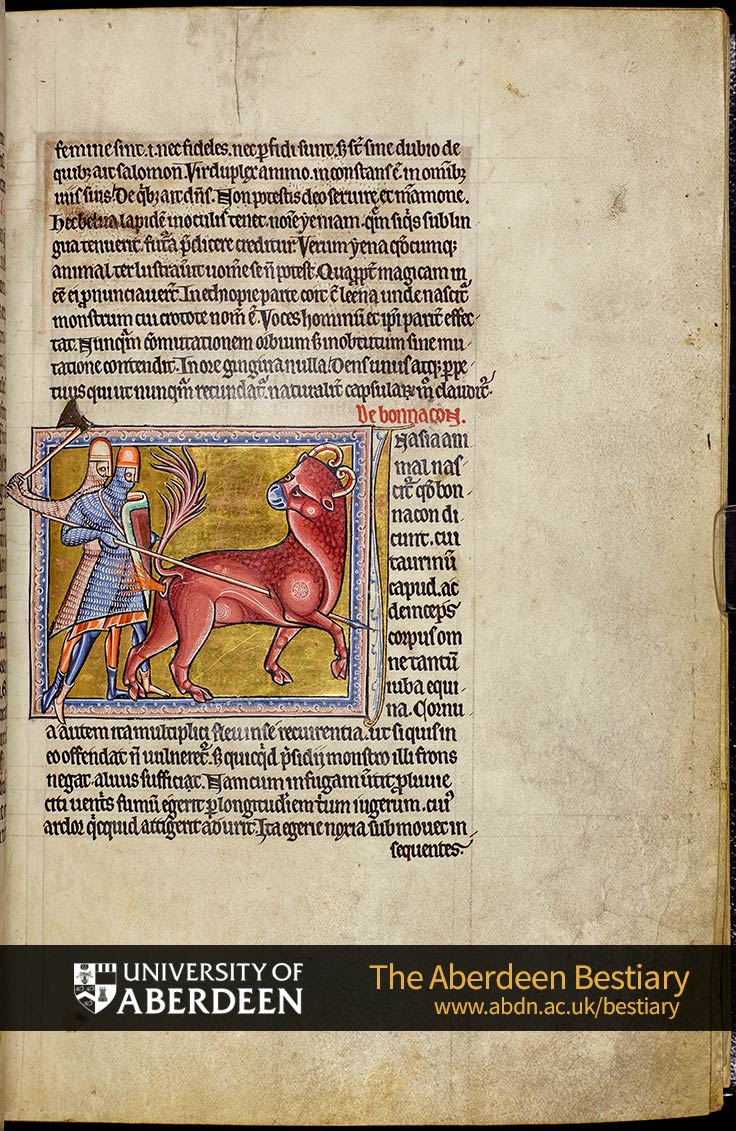 12
femine sint .i. nec fideles. nec ꝑfidi sunt. ꝫ st̄ sine dubio de
quibꝫ ait salomon̄. Vir duplex animo. inconstans ē in om̄ibꝫ
uiis suis. De qͥbꝫ ait dn̄s. Non potestis deo seruire et mamone.
Hec belua lapidē in oculis tenet. noīe yeniam. qm̄ siq̄s sub lin
gua tenuerit. futa p̄dicere creditur. Verum yena qōcumqꝫ
animal ter lustrauerit mouere se n̄ potest. Quapp̄t magicam in
eē ei ꝓnunciauert̄. In ethiopie parte coit c̄ leena unde nascit̄
monstrum cui crocote nom̄ ē. Voces hominū et ipi parit̄ effec
tat. Nunqm̄ cōmutationem orbium ꝫ in obtutum sine mu
tatione contendit. In ore gingiua nulla. Dens unus atqꝫ ꝑpe
tuus qui ut nunqm̄ retundat̄ naturalit̄ capsularꝫ m̄ clauditͬ.
De bonnacon.
In asia ani
mal nas
cit̄ qō bon
nacon di
cunt. cui
taurinū
capud. ac
deinceps
corpus om
ne tantū
iuba equi
na. Cornu
a autem ita multiplici flexu in se recurrentia. ut si quis in
eo offendat n̄ uulneret̄. ꝫ quicqͥd p̄sidij monstro illi frons
negat. aluus sufficiat. Nam cum in fugam ūtit̄ ꝓluuie
citi uent̄s fumū egerit ꝑ longitudīem trium iugerum. cuiꝰ
ardor qͥcquid attigerit adurit. Ita egerie noxia submouet in
sequentes.
UNIVERSITY OF
ABERDEEN
The Aberdeen Bestiary
www.abdn.ac.uk/bestiary